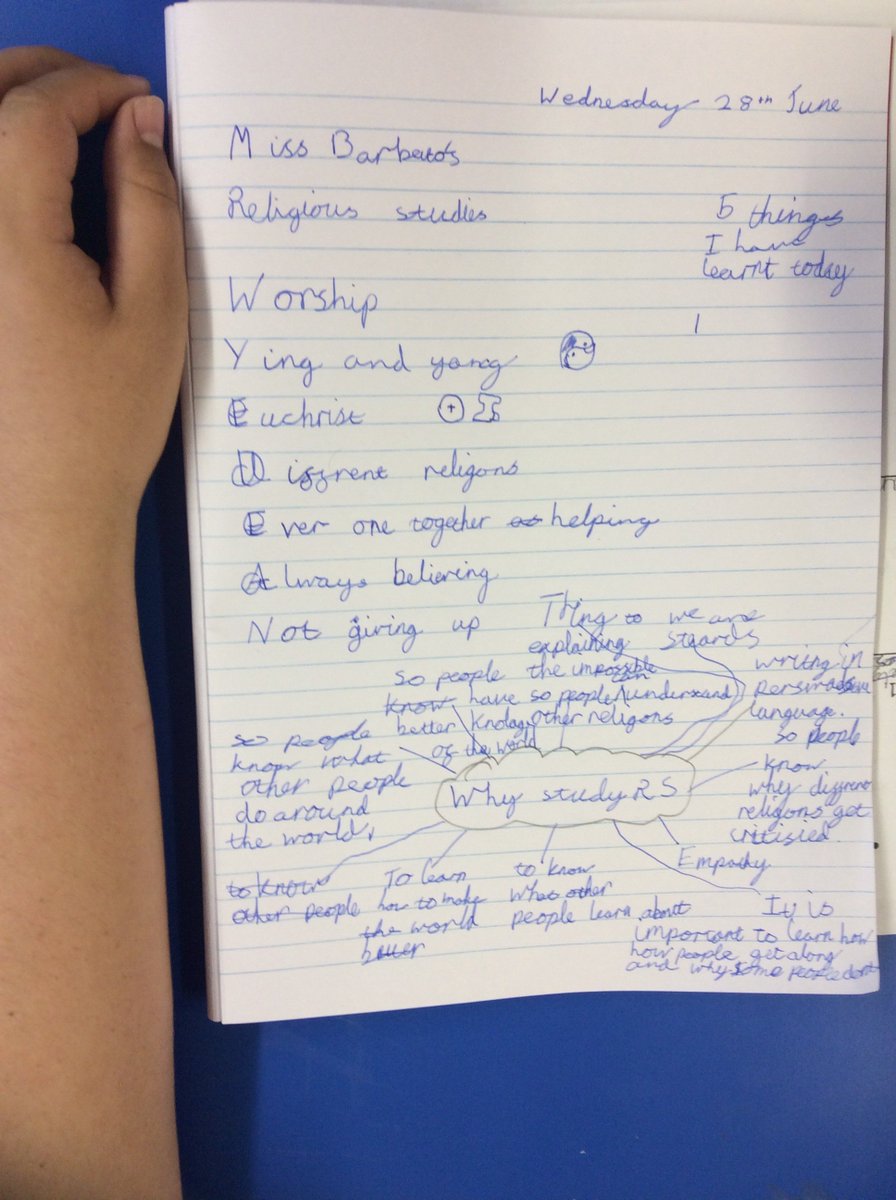 Wednesday 28th June
Miss Barbato's
Religious studies
5 things
I have
learnt today
1
Worship
Ying and yang
Euchrist
Diffrent religons
Ever one together helping
Always believing
Not giving up
Thing to
explaining
the impossible
so people can understand
other religons
we are
stuards
writng in
persuasive
language.
so people
know
have
better knolage
of the world
so people
know what
other people
do around
the world,
Why study RS
so people
know
why diffrent
religons get
critisied.
Empathy
to know
other people
To learn
how to make
the world
better
to know
what other
people learn about
It is
important to learn how
how people get along
and why some people dont